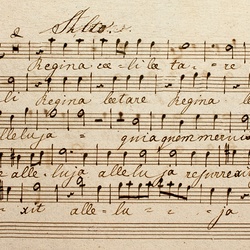 Alto.
Regina cœ - li læ - ta - - re
li Regina lætare Regina
alleluja - quia quem meru
alle - luja allelu ja resurrexit
- xit alle - lu - - - ja